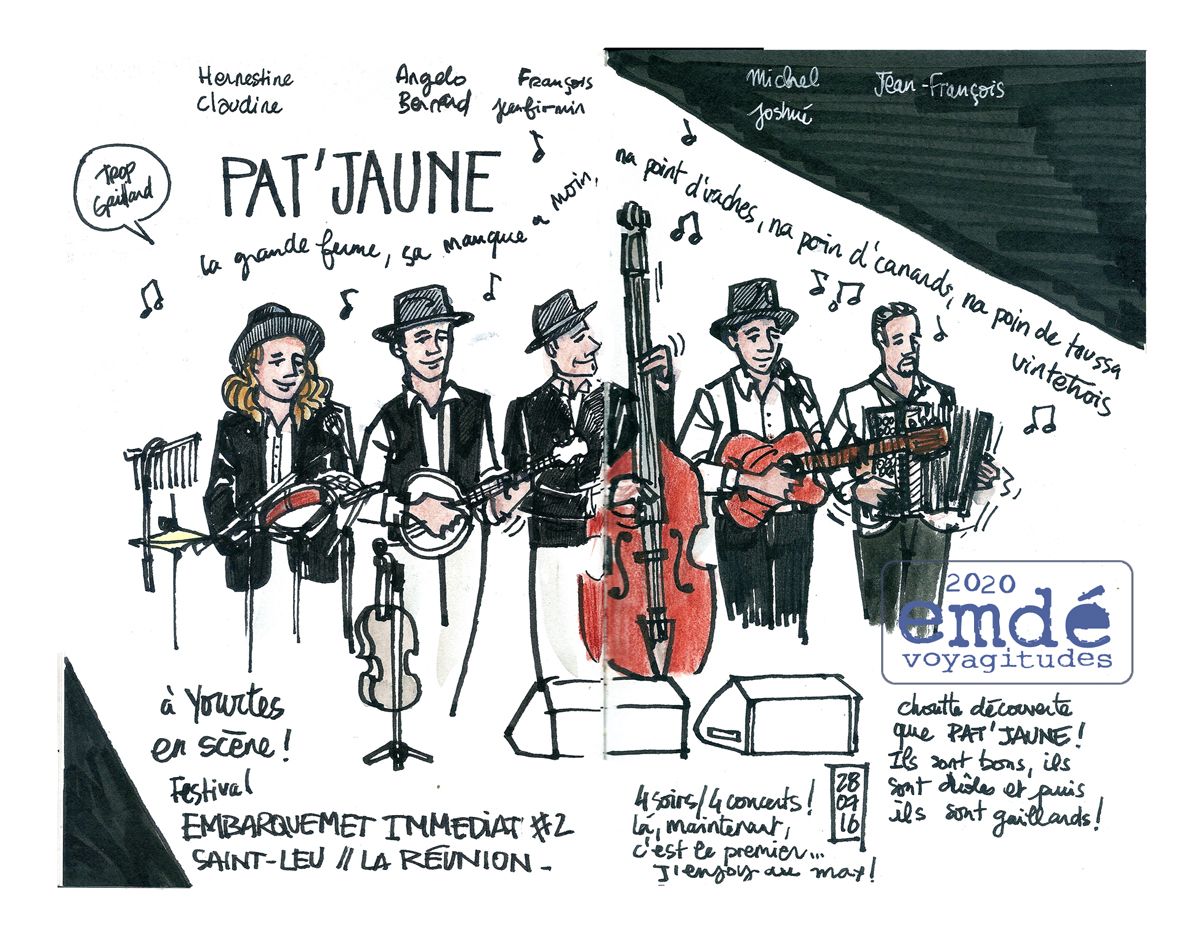 Hernestine
Claudine
Angelo
Bernard
François
Jeanfirmin
Michel
Joshué
Jean-François
TROP
Gaillard
PAT'JAUNE
la grande ferme, sa manque a moin,
na point d'vaches, na poin d'canards, na poin de toussa
vintetrois
2020
emdé
voyagitudes
à Yourtes
en scène!
Festival
EMBARQUEMET IMMEDIAT #2
SAINT-LEU // LA RÉUNION_
4 soirs/4 concerts!
Là, maintenant,
c'est le premier...
J'enjoy au max!
28
09
16
chouette découverte
que PAT'JAUNE!
Ils sont bons, ils
sont drôles et puis
ils sont gaillards!